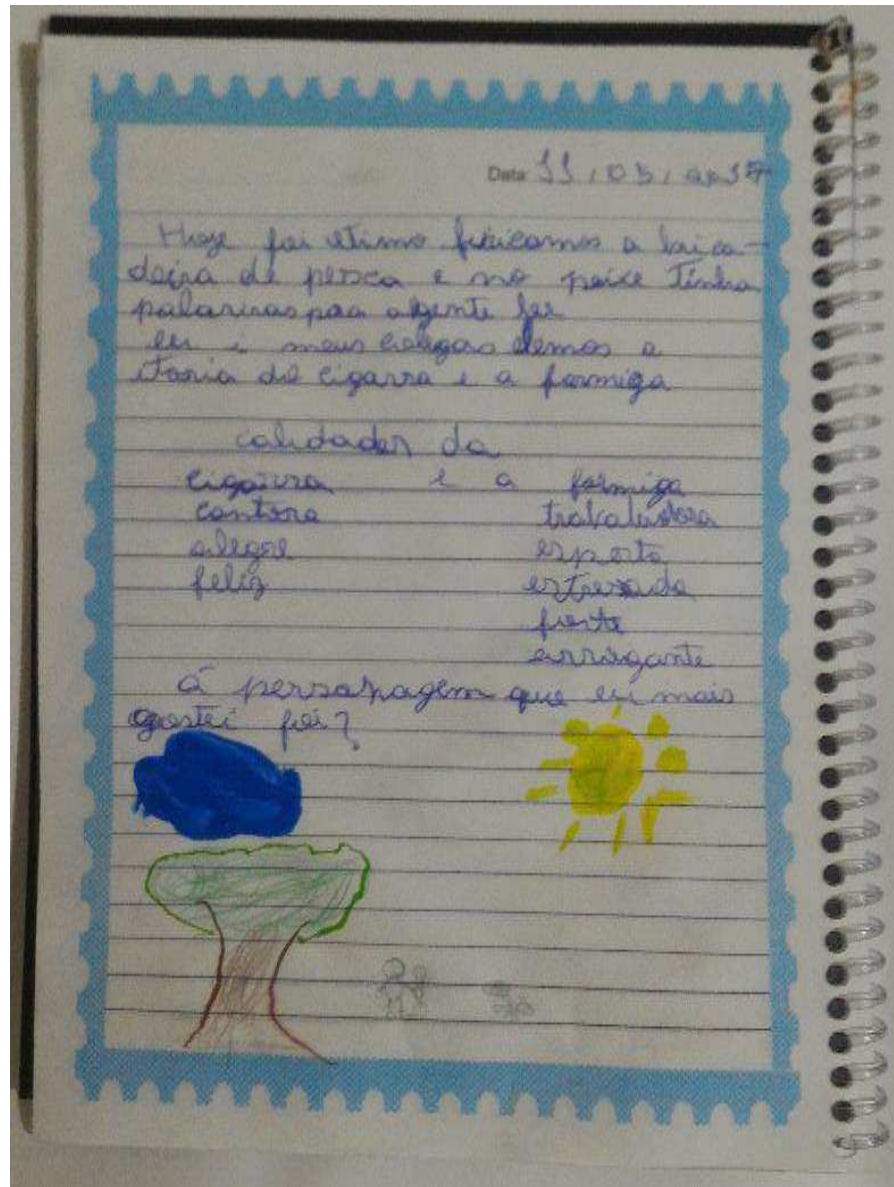 Data 11 / 05 / 2017
Hoje foi otimo fizicamos a baica-
deira de pesca e no peixe tinha
palavras paa agente ler
eu i meus colegas lemos a
itoria da cigarra e a formiga
calidades da
cigarra e a formiga
cantora trabaladora
alegre esperta
feliz estresada
forte
arrogante
a personagem que eu mais
gostei foi?